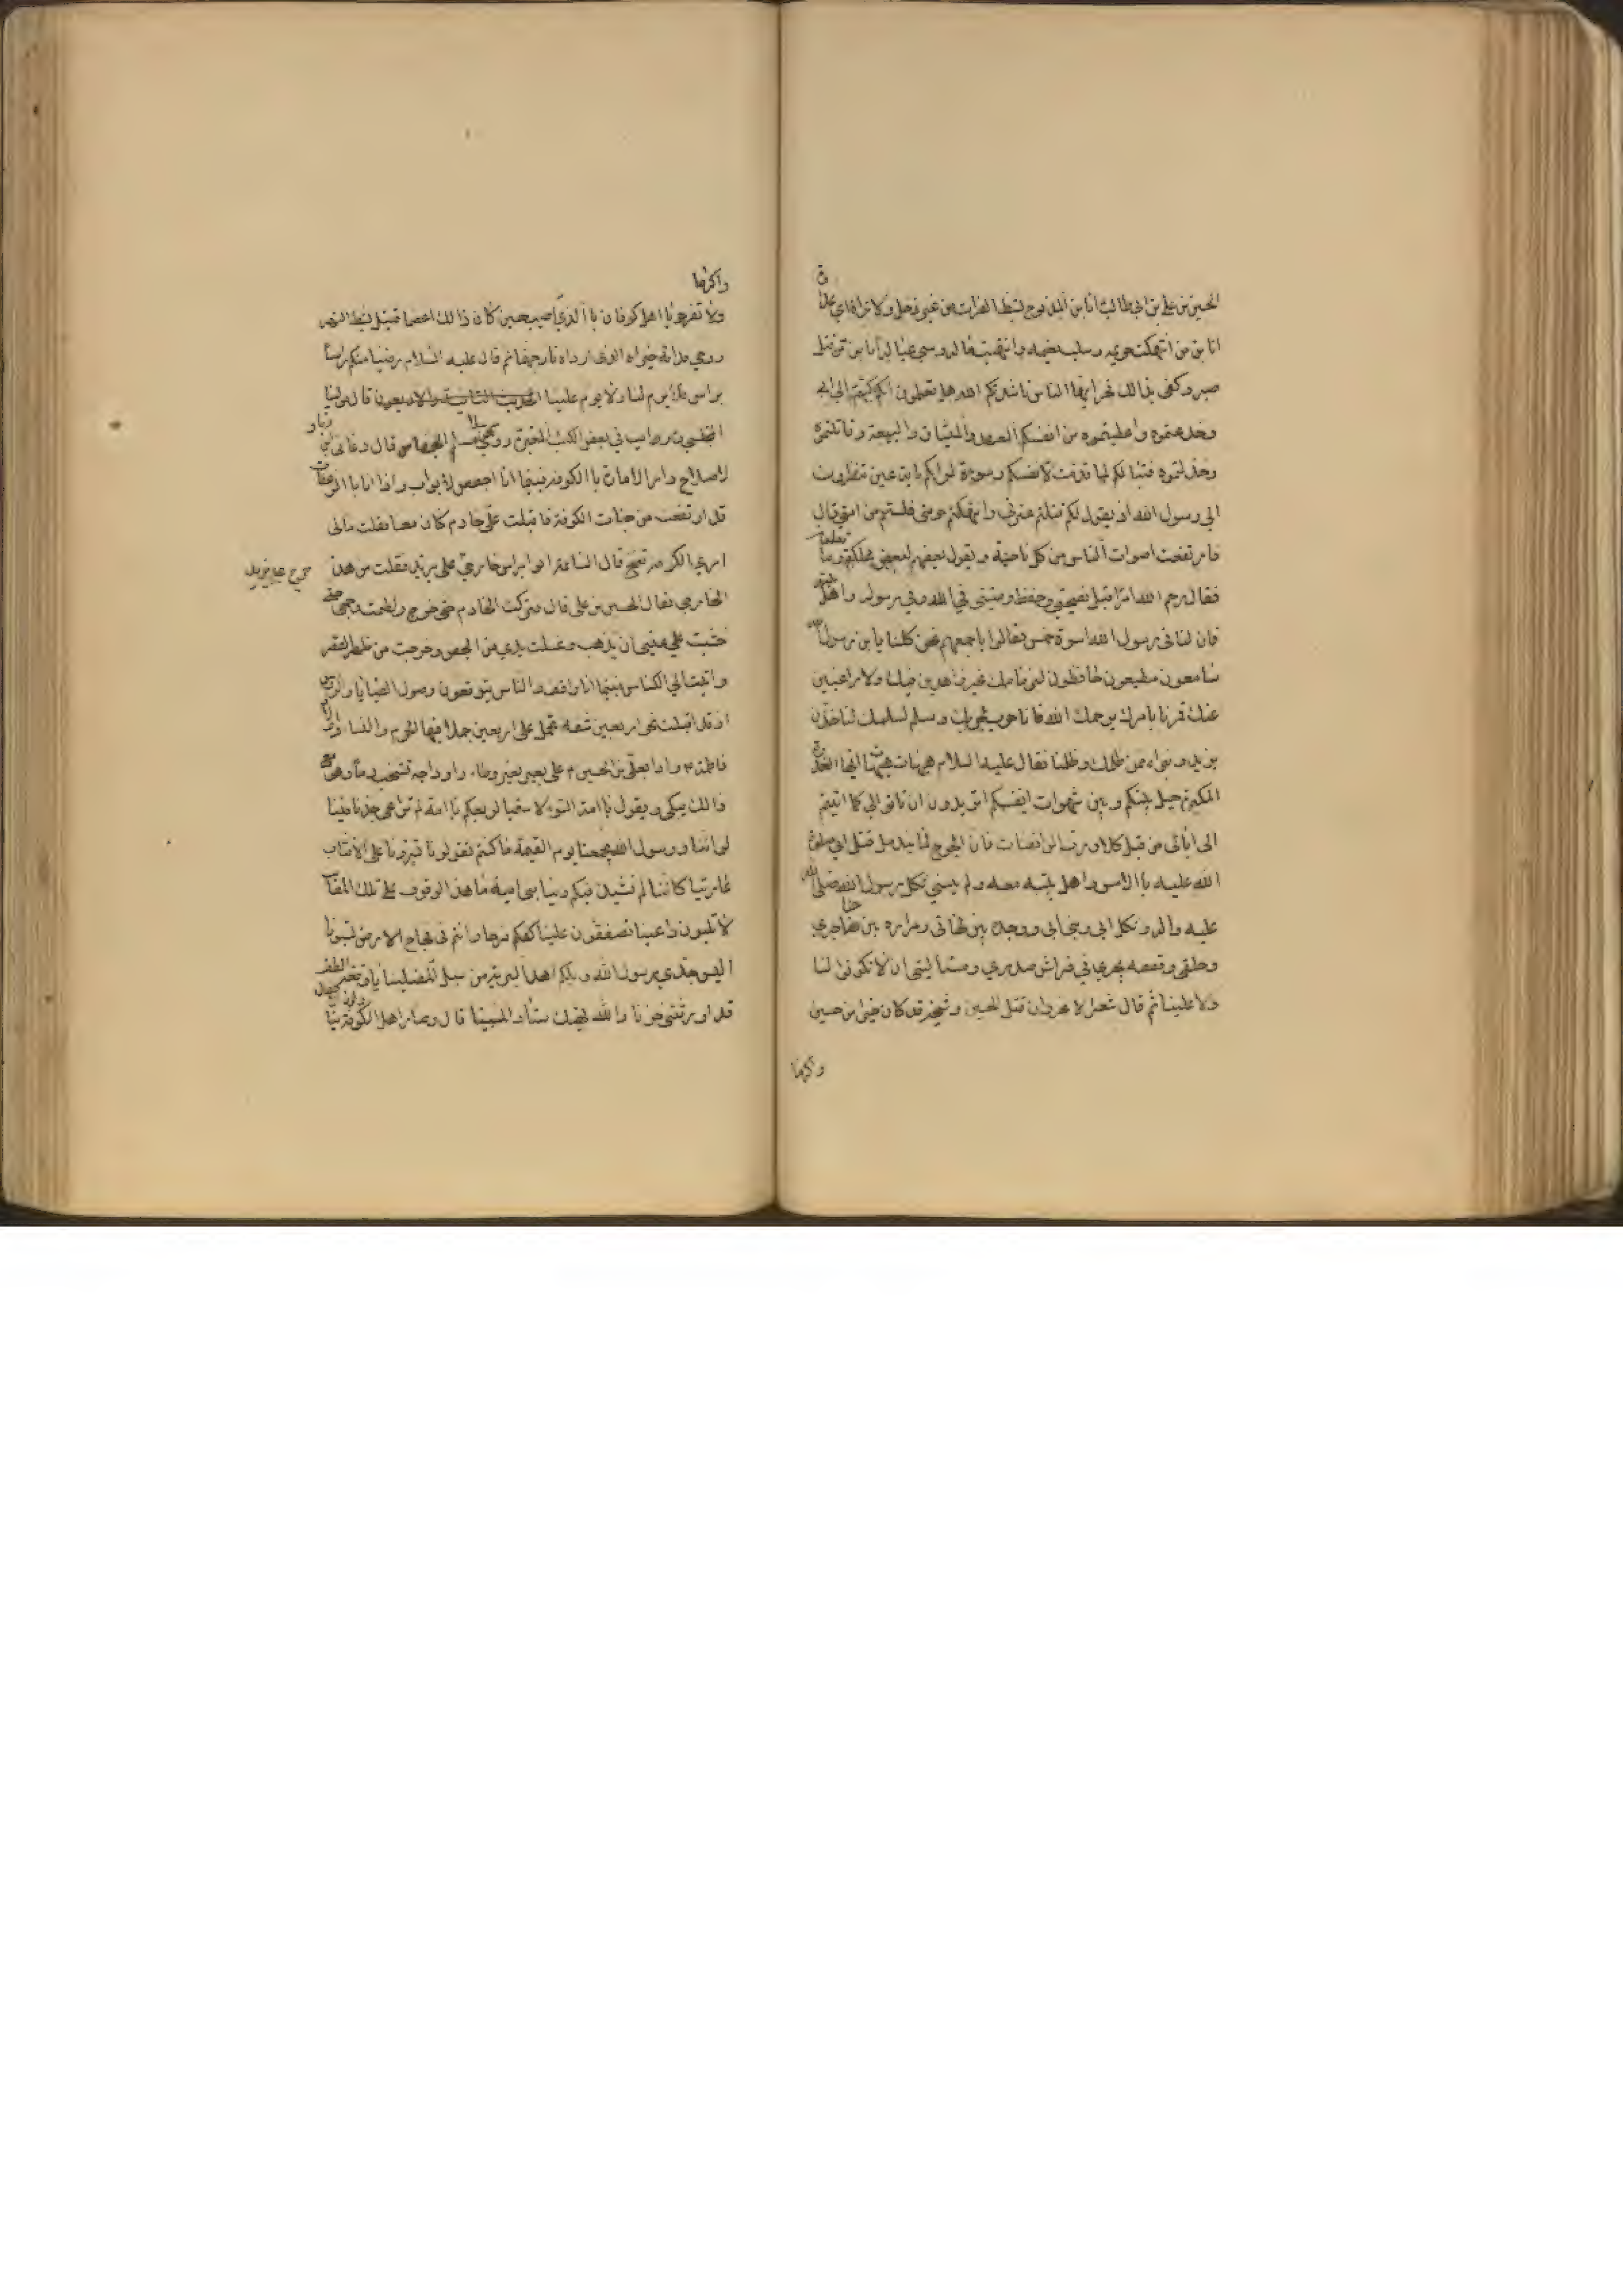 الحسين بن علي بن ابي طالب انا بن المذبوح لشط الفرات من غير ذحل ولا ترات اي علي
انا بن من انتهكت حريمه وسلب نعيمه وانتهب ماله وسبي عياله انا بن من قتل
صبر وكفى بذالك فخر ايها الناس ناشدتكم الله هل تعلمون انكم كتبتم الى ابي
وخدعتموه واعطيتموه من انفسكم العهد والميثاق والبيعة وقاتلتموه
وخذلتموه فتبا لكم لما قدمت لانفسكم وسوءة لرايكم بايت عين تنظرون
الى رسول الله اذ يقول لكم قتلتم عترتي وانتهكتم حرمتي فلستم من امتي قال
فارتفعت اصوات الناس من كل ناحية ويقول بعضهم لبعض هلكتم وما تعلمون
فقال رحم الله امرا قبل نصيحتي وحفظ وصيتي في الله وفي رسوله واهل بيته
فان لنا في رسول الله اسوة حسن فقالوا باجمعهم نحن كلنا يابن رسول الله
سامعون مطيعون حافظون لذمامك غير زاهدين فيك ولا راغبين
عنك فمرنا بامرك يرحمك الله فانا حرب لحربك وسلم لسلمك لناخذن
يزيد ونبراء ممن ظلمك وظلمنا فقال عليه السلام هيهات هيهات ايها الغدرة
المكرة حيل بينكم وبين شهوات انفسكم اتريدون ان تاتوا الي كما اتيتم
الى ابائي من قبل كلا ورب الراقصات فان الجرح لما يندمل قتل ابي صلوات
الله عليه باالامس واهل بيته معه ولم ينسني ثكل رسول الله صلى الله
عليه واله وثكل ابي وبني ابي ووجده بين لهاتي ومراره بين حناجري
وحلقي وغصصه يجري في فراش صدري ومسئلتي ان لا تكونوا لنا
ولا علينا ثم قال شعر لا غرو ان قتل الحسين وشيخه قد كان خيرا من حسين
واكرما
واكرما
ولا تفرحوا يا اهل كوفان باالذي اصيب حسين كان ذالك اعظما قتيل بشط النهر
روحي فداءه جزاء الذي ارداه نار جهنما ثم قال عليه السلام رضينا منكم راسا
براس فلا يوم لنا ولا يوم علينا الحديث الثاني والاربعون قال مولينا
المجلسي رايت في بعض الكتب المعتبرة روى مرسلا عن مسلم الجصاص قال دعاني ابن زياد
لاصلاح دار الامارة باالكوفة فبينما انا اجصص الابواب واذا انا باالزعقات
قد ارتفعت من جنبات الكوفة فاقبلت على خادم كان معنا فقلت مالي
ارى الكوفة تضج قال الساعة اتوا براس خارجي خرج على يزيد فقلت من هذا
الخارجي فقال الحسين بن علي قال فتركت الخادم حتى خرج ولطمت وجهي حتى
خشيت على عيني ان يذهب وغسلت يدي من الجص وخرجت من ظهر القصر
واتيت الى الكناس فبينما انا واقف والناس يتوقعون وصول السبايا والرؤس
اذ قد اقبلت نحو اربعين شقة تحمل على اربعين جملا فيها الحرم والنساء واولاد
فاطمة ع واذا بعلي بن الحسين ع على بعير بغير وطاء واوداجه تشخب دما وهو مع
ذالك يبكي ويقول يا امة السوء لا سقيا لربعكم يا امة لم تراعي جدنا فينا
لو اننا ورسول الله يجمعنا يوم القيمة ما كنتم تقولونا تسيرونا على الاقتاب
عارية كاننا لم نشيد فيكم دينا بني امية ما هذا الوقوف على تلك المصائب
لا تلبون داعينا تصفقون علينا كفكم فرحا وانتم في فجاج الارض تسبونا
اليس جدي رسول الله ويلكم اهدا البرية من سبل المضلينا يا وقعة الطف
قد اورثتني حزنا والله يهتك ستار المسيئينا قال وصار اهل الكوفة يناولون الاطفال